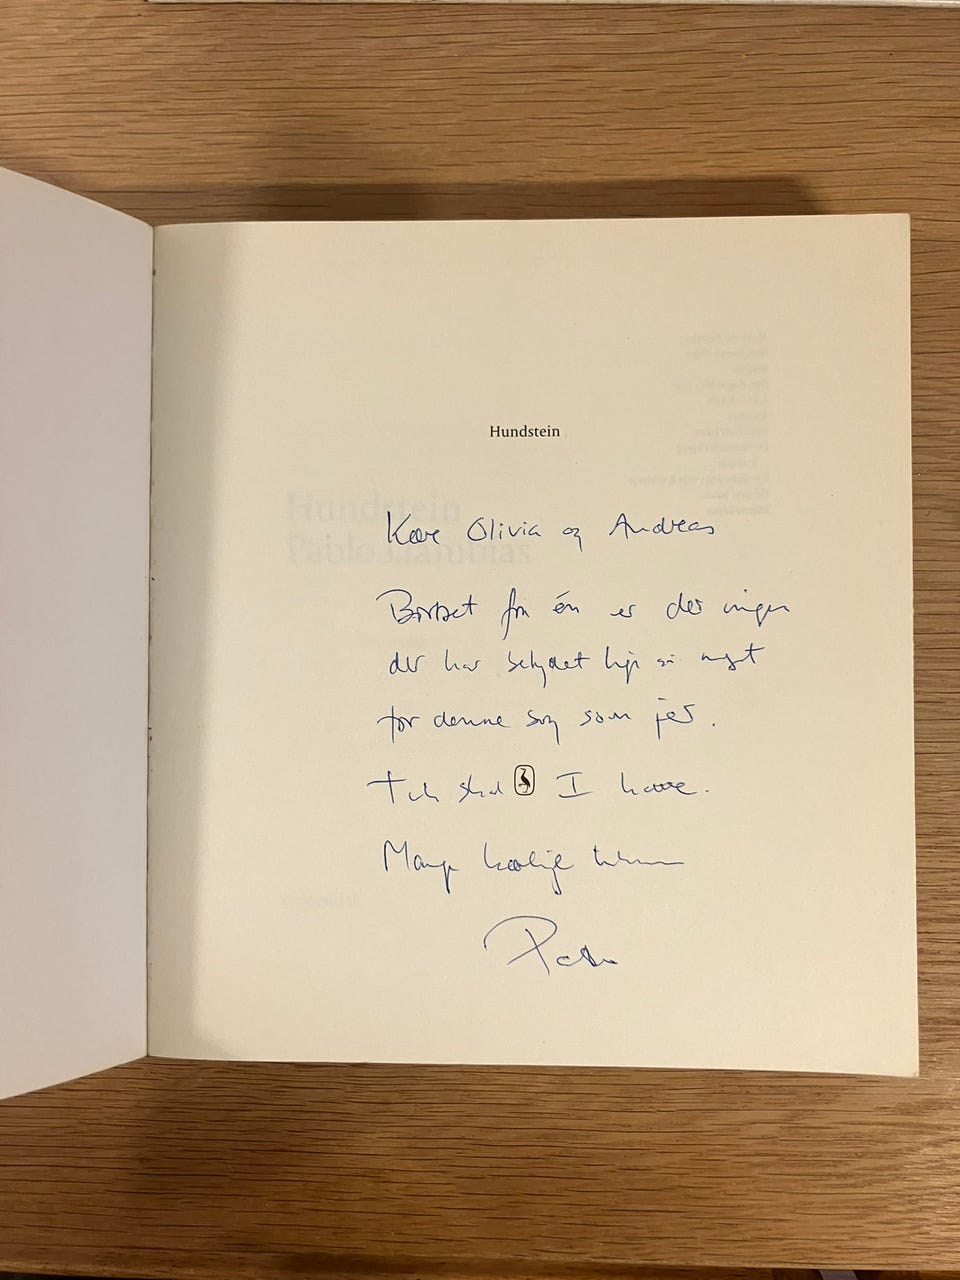 Hundstein
Hundstein
Pablo Llambías
Kære Olivia og Andreas
Bortset fra én er der ingen
der har betydet lige så meget
for denne bog som jer.
Tak skal I have.
Mange kærlige hilsner
Pablo